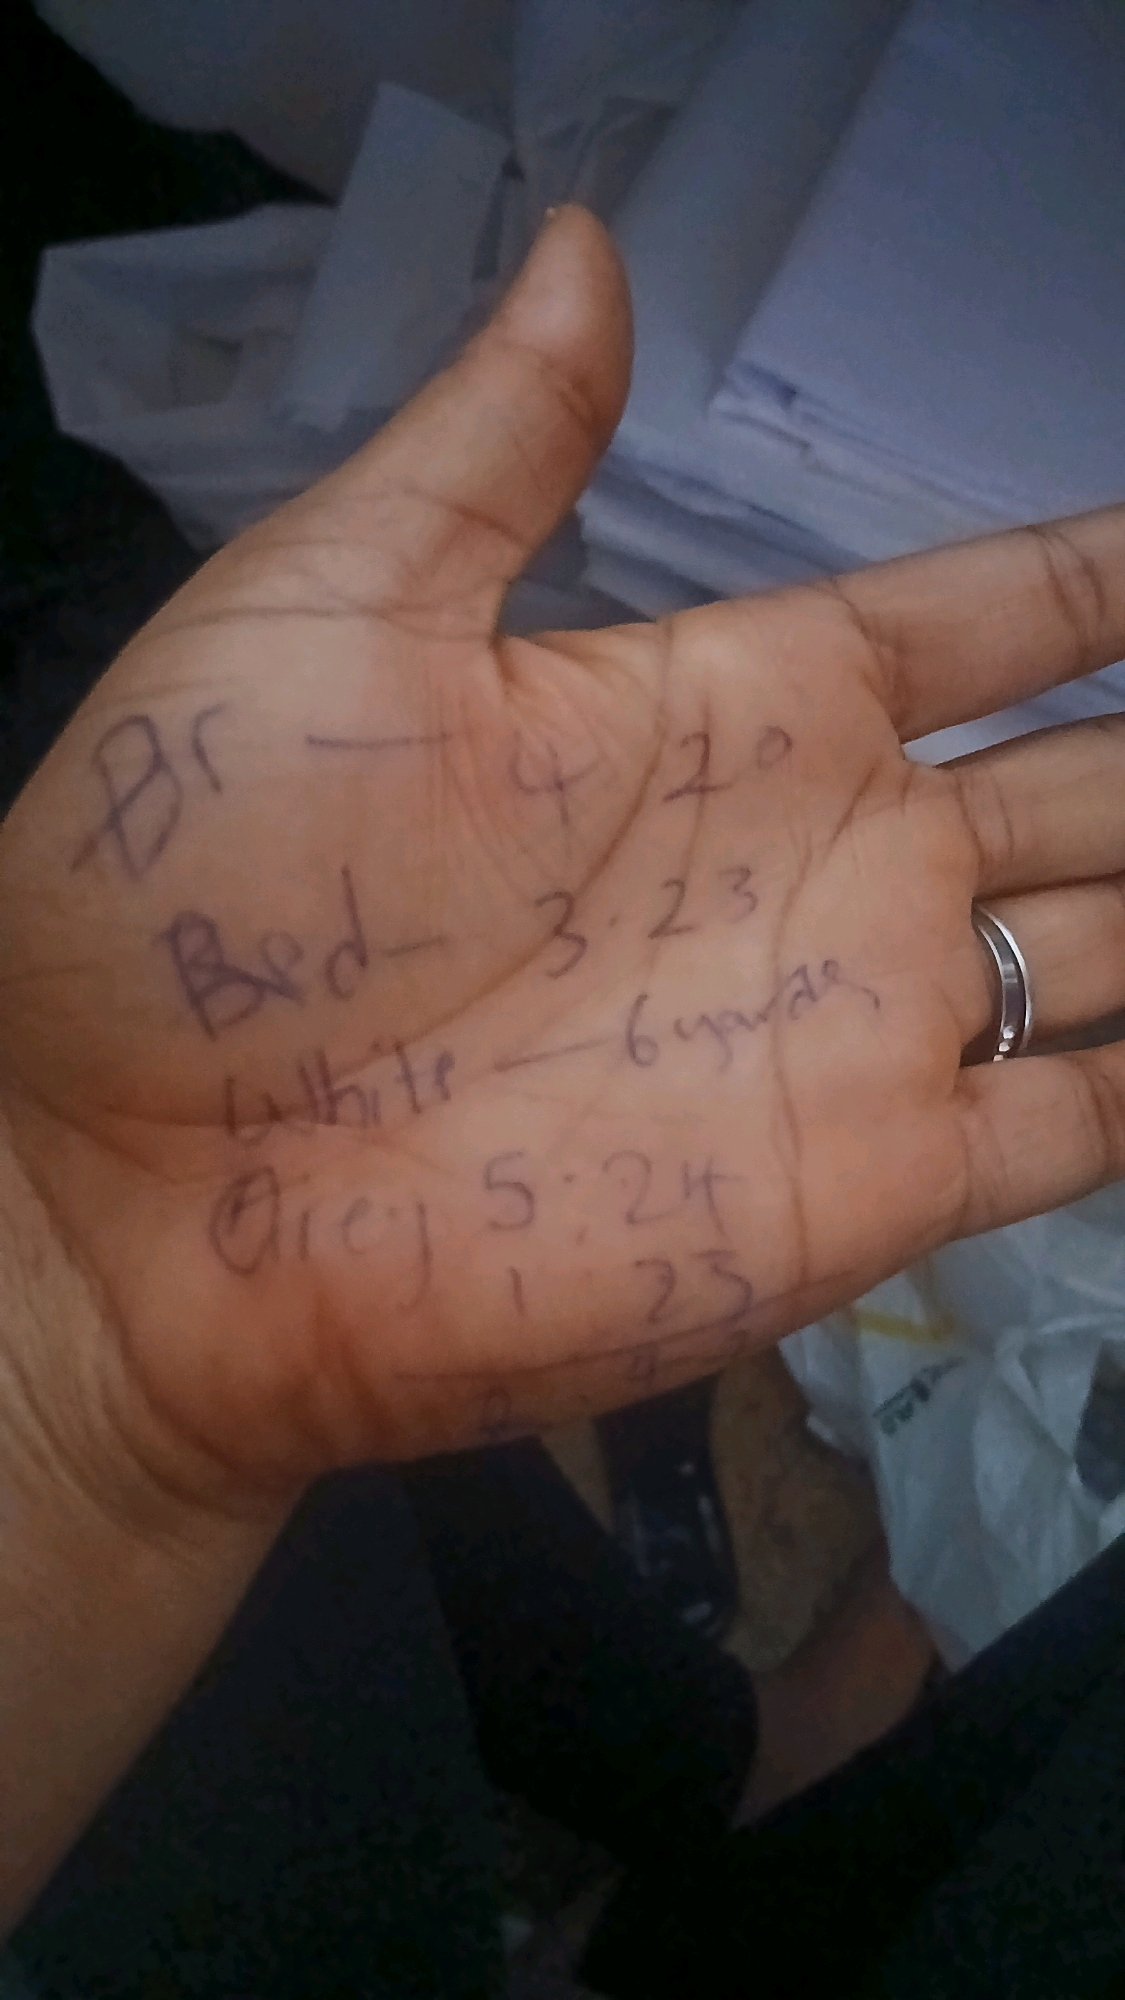 Br — 4 20
Bed - 3.23
White — 6 yards
Grey 5.24
1 23